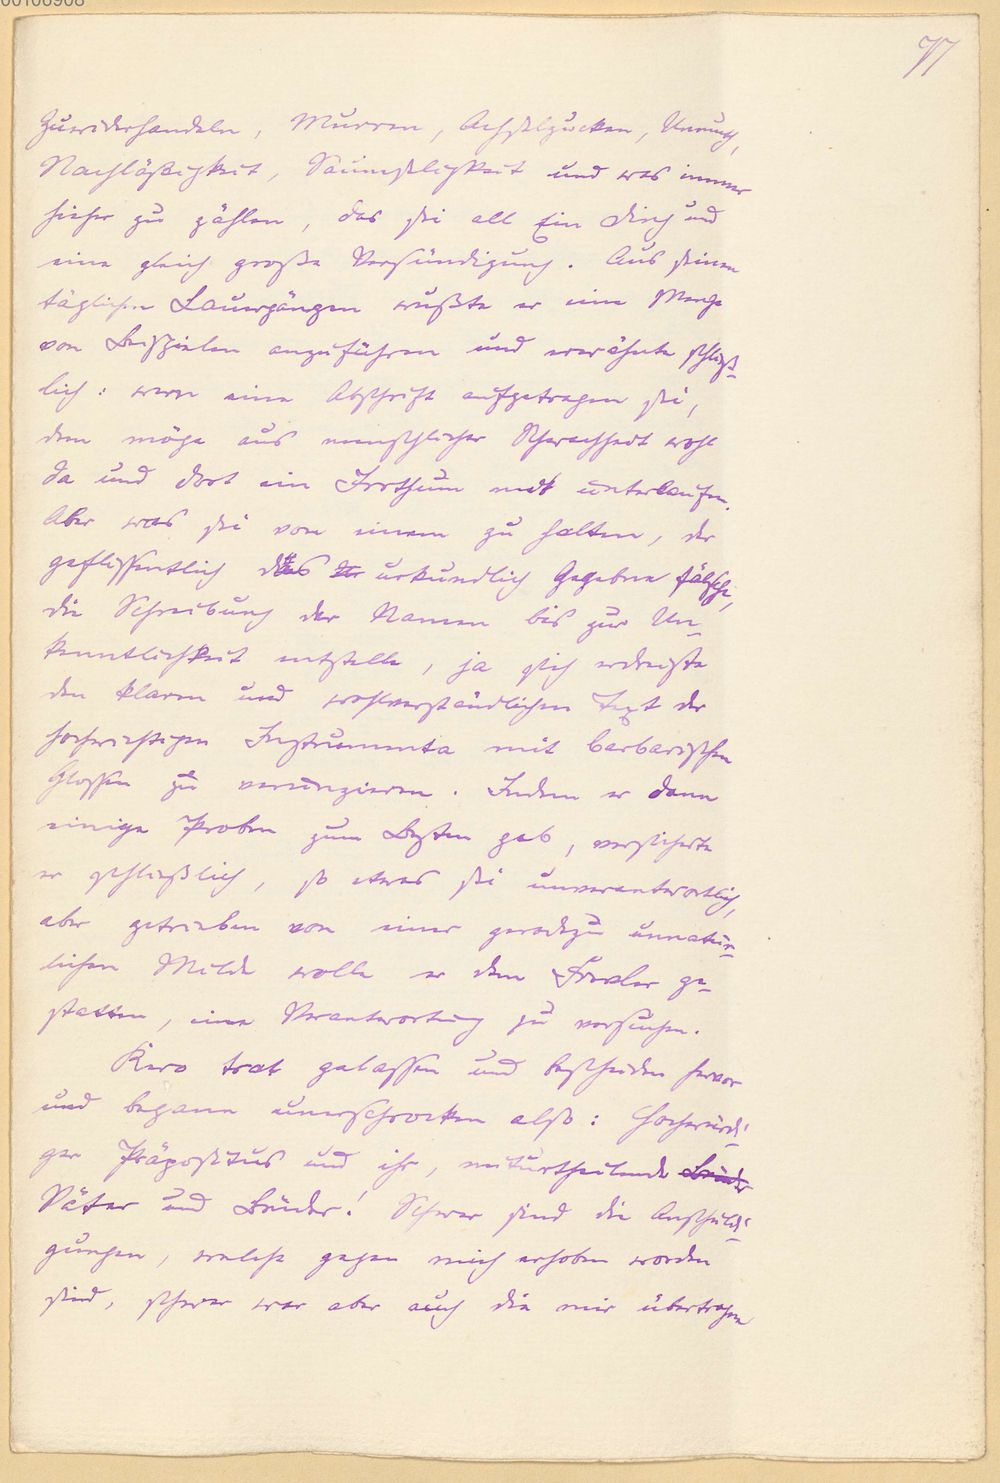 77
Zuwiderhandeln, Murren, Achselzucken, Unmuth,
Nachläßigkeit, Saumseligkeit und was immer
hieher zu zählen, das sei all Ein Ding und
eine gleich große Versündigung. Aus seinen
täglichen Lauergängen wußte er eine Menge
von Beispielen anzuführen und erwähnte schließ-
lich: wem eine Abschrift aufgetragen sei,
dem möge aus menschlicher Schwachheit wohl
da und dort ein Irrthum mit unterlaufen.
Aber was sei von einem zu halten, der
geflissentlich das urkundlich Gegebene fälsche,
die Schreibung der Namen bis zur Un-
kenntlichkeit entstelle, ja sich erdreiste
den klaren und wohlverständlichen Text der
hochwichtigen Instrumenta mit barbarischen
Glossen zu verunzieren. Indem er dann
einige Proben zum Besten gab, versicherte
er schließlich, so etwas sei unverantwortlich,
aber getrieben von einer geradezu unnatür-
lichen Milde wolle er dem Frevler ge-
statten, eine Verantwortung zu versuchen.
Kero trat gelassen und bescheiden hervor
und begann unerschrocken also: Hochwürdi-
ger Präpositus und ihr, miturtheilende Brüder
Väter und Brüder! Schwer sind die Anschuldi-
gungen, welche gegen mich erhoben worden
sind, schwer war aber auch die mir übertragene